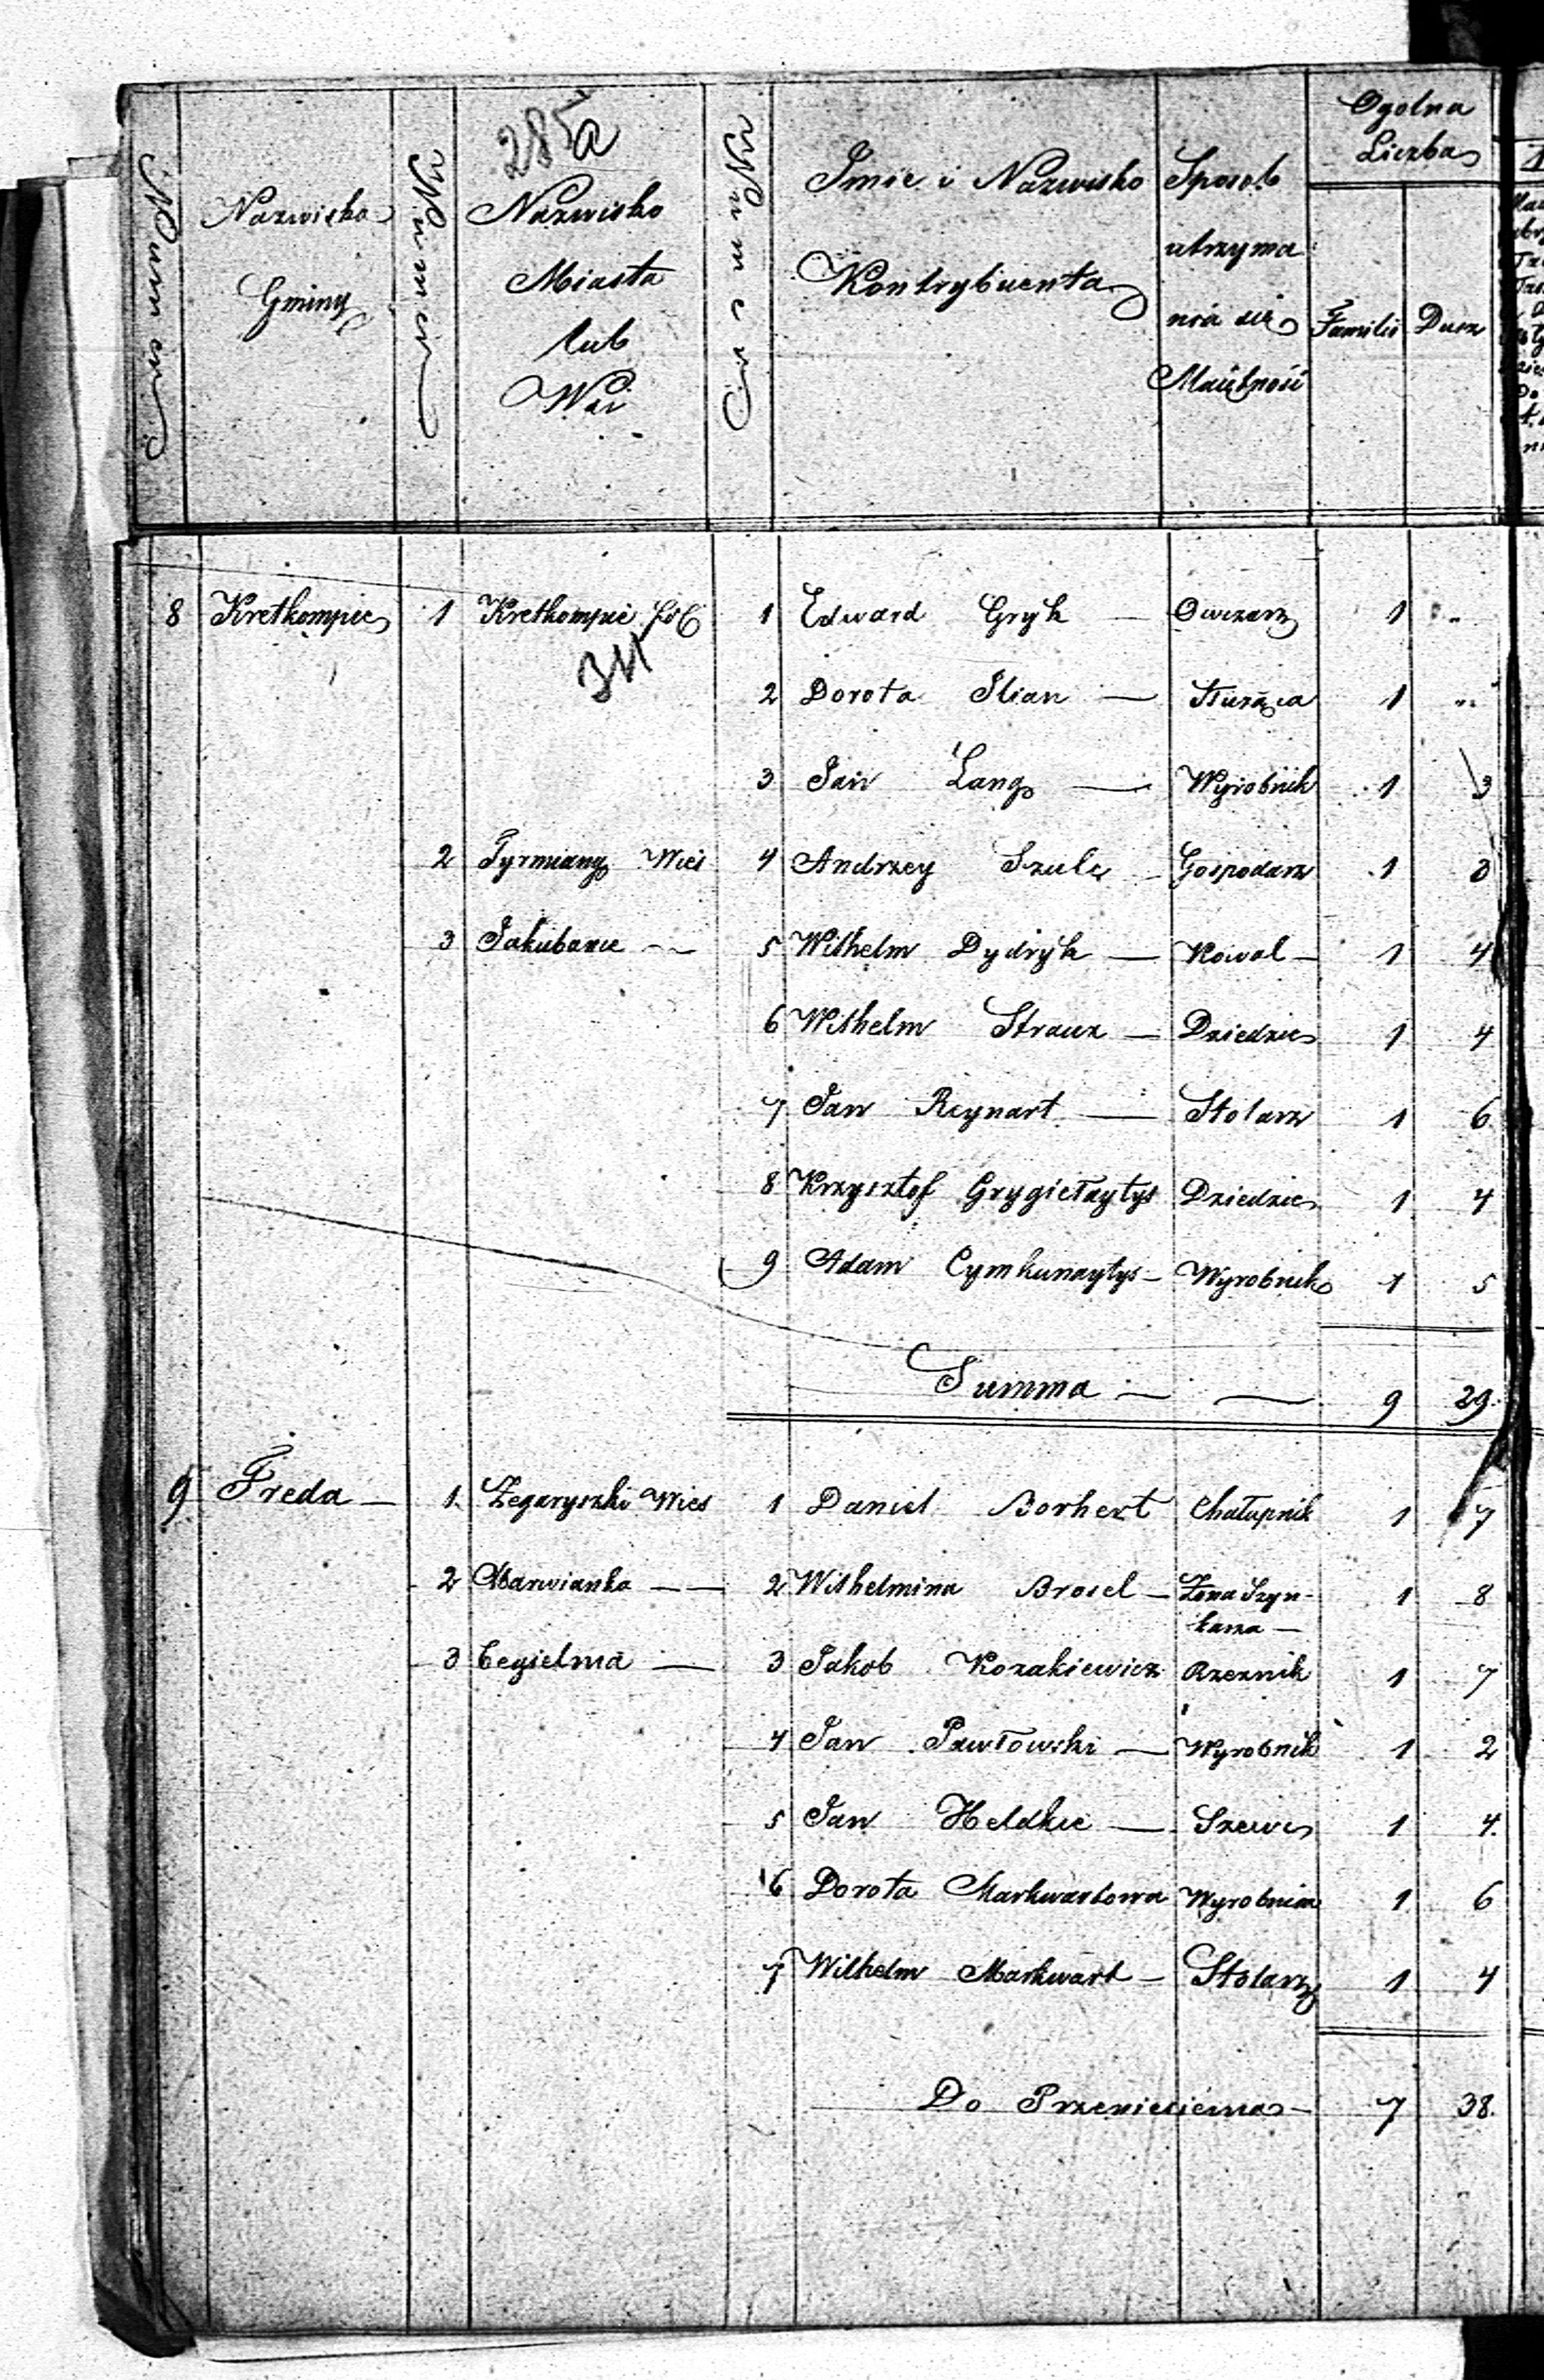 285a
Ogolna
Liczba
Numer
Nazwisko
Gminy
Numer
Nazwisko
Miasta
lub
Wsi
Numer
Imie i Nazwisko
Kontrybuenta
Sposob
utrzyma
nia się
Maiętność
Familii Dusz
8 Kretkompie 1 Kretkompie fol 1 Edward Gryk — Owczarz 1 "
341
2 Dorota Ilian — Służąca 1 "
3 Jan Lang — Wyrobnik 1 3
2 Tyrmiany Wieś 4 Andrzey Szulc Gospodarz 1 3
3 Jakubance — 5 Wilhelm Dydryk — Kowal — 1 4
6 Wilhelm Strauz — Dziedzic 1 4
7 Jan Reynart — Stolarz 1 6
8 Krzysztof Grygiełaytys Dziedzic 1 4
9 Adam Cymkunaytys — Wyrobnik 1 5
Summa — — 9 29
9 Freda — 1 Zegaryszki Wies 1 Daniel Borhert Chałupnik 1 7
2 Marwianka — 2 Wilhelmina Brosel — Żona Szyn-
karza —
1 8
3 Cegielnia — 3 Jakob Kozakiewicz Rzeznik 1 7
4 Jan Pawłowski — Wyrobnik 1 2
5 Jan Heldkie — Szewc 1 4
6 Dorota Markwartowa Wyrobnica 1 6
7 Wilhelm Markwart — Stolarz 1 4
Do Przeniesienia — 7 38